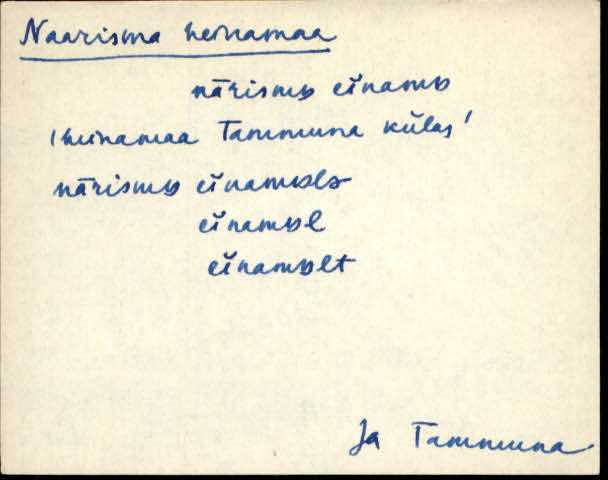 Naarisma heinamaa
nārismɒ eīnamɒ
'heinamaa Tammuna külas'
nārismɒ eīnamɒlɜ
eīnamɒl
eīnamɒlt
Ja Tammuna